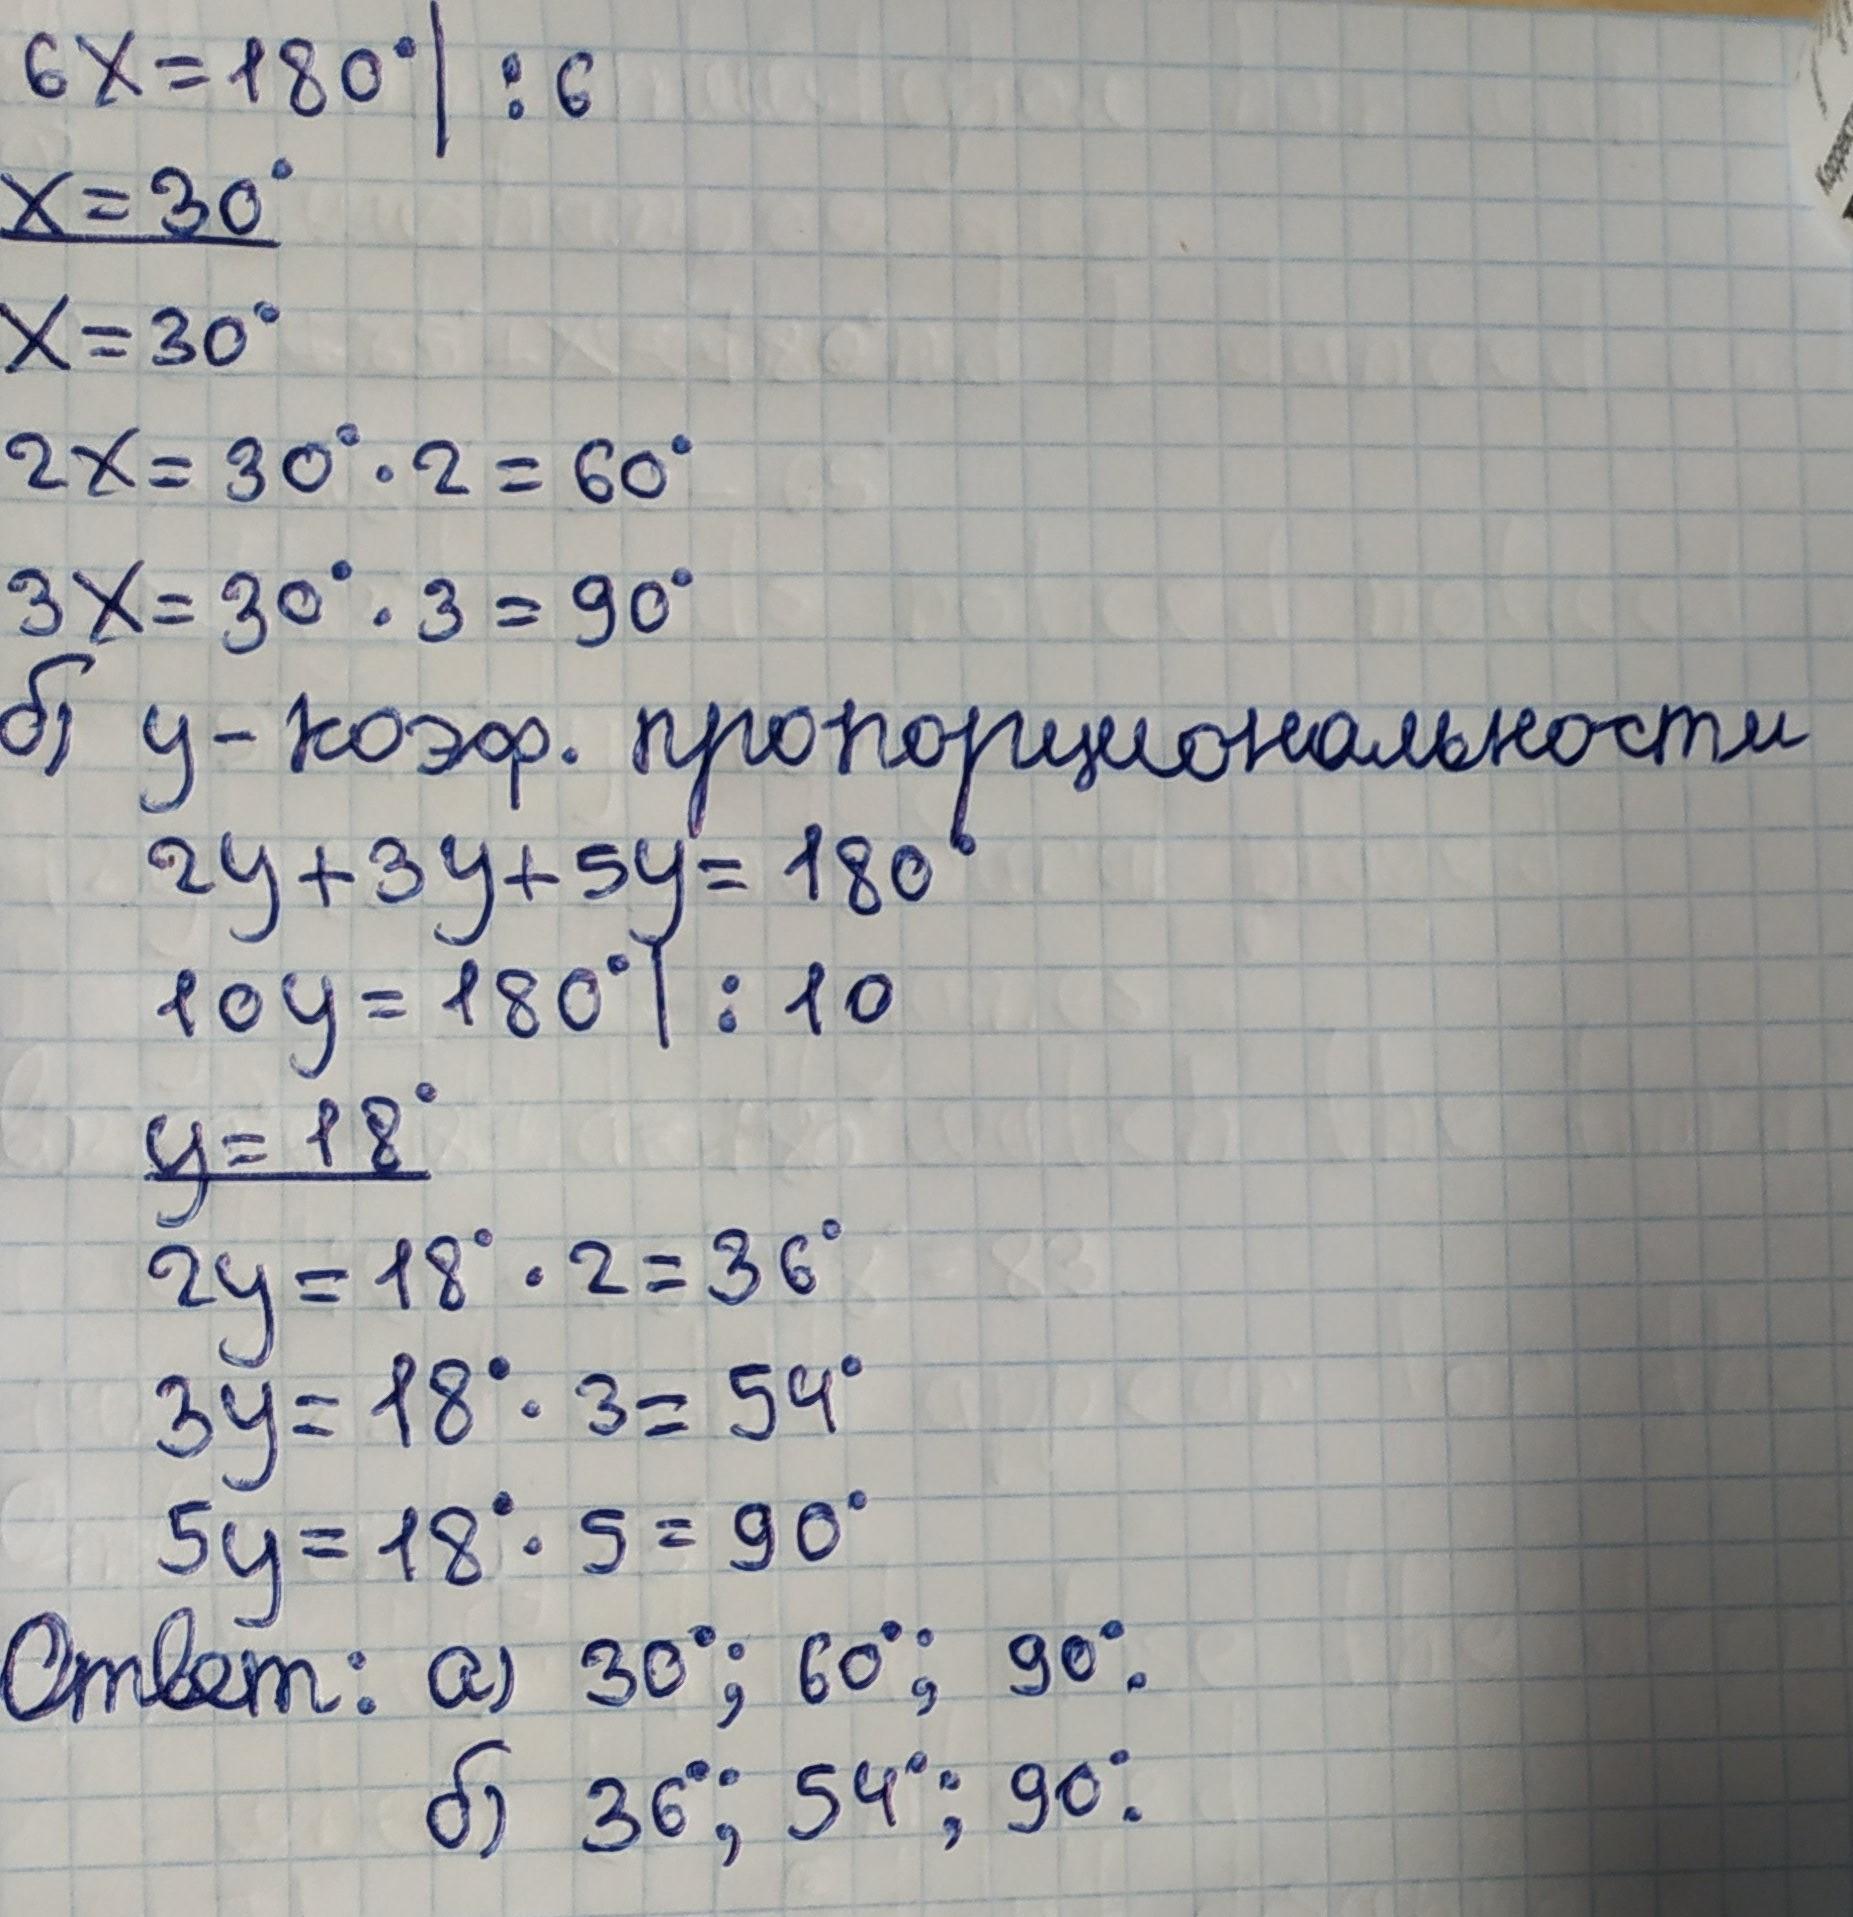 6x=180°| :6
x=30°
x=30°
2x=30°·2=60°
3x=30°·3=90°
б) y-коэф. пропорциональности
2y+3y+5y=180°
10y=180°| :10
y=18°
2y=18°·2=36°
3y=18°·3=54°
5y=18°·5=90°
Ответ: а) 30°; 60°; 90°.
б) 36°; 54°; 90°.